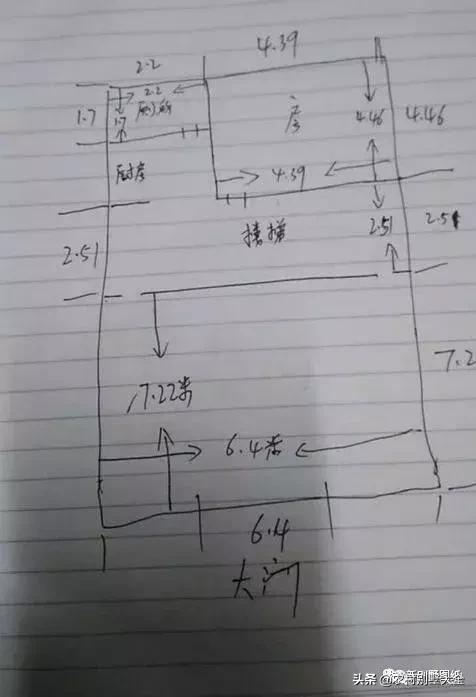 2.2
4.39
2.2
厕所
1.7
1.7
主
4.46
4.46
厨房
4.39
楼梯
2.51
2.51
2.51
7.22米
7.2
6.4米
6.4
大门
头条